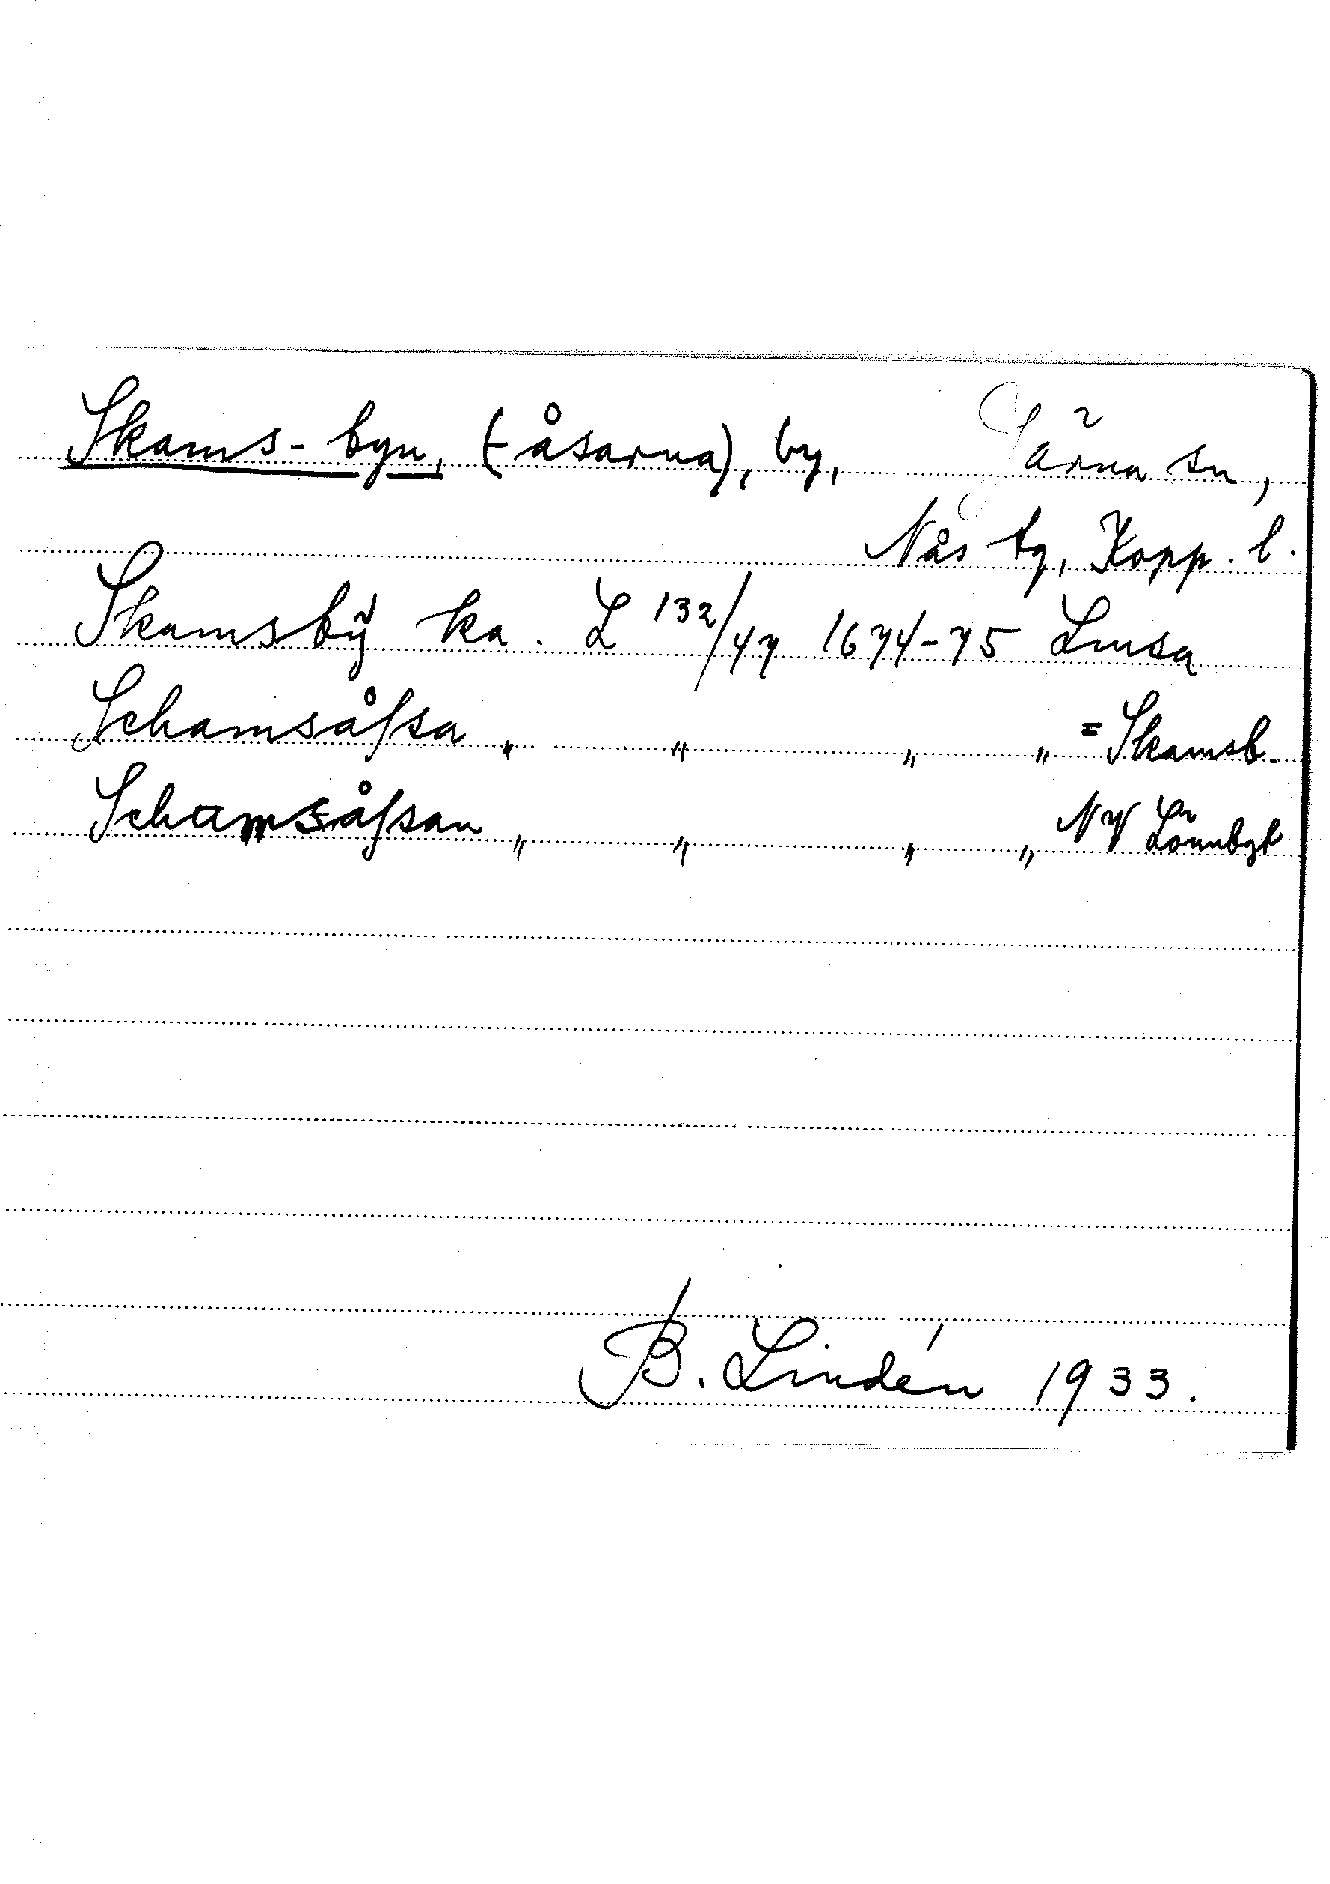 Skams-byn, (-åsarna), by, Järna sn,
Nås tg, Kopp. l.
Skamsbÿ ka. L 132/47 1674-75 Lmsa
Schamsåssa „ „ „ „ = Skamsb.
Schamsåssan „ „ „ „ NV
B. Lindén 1933.